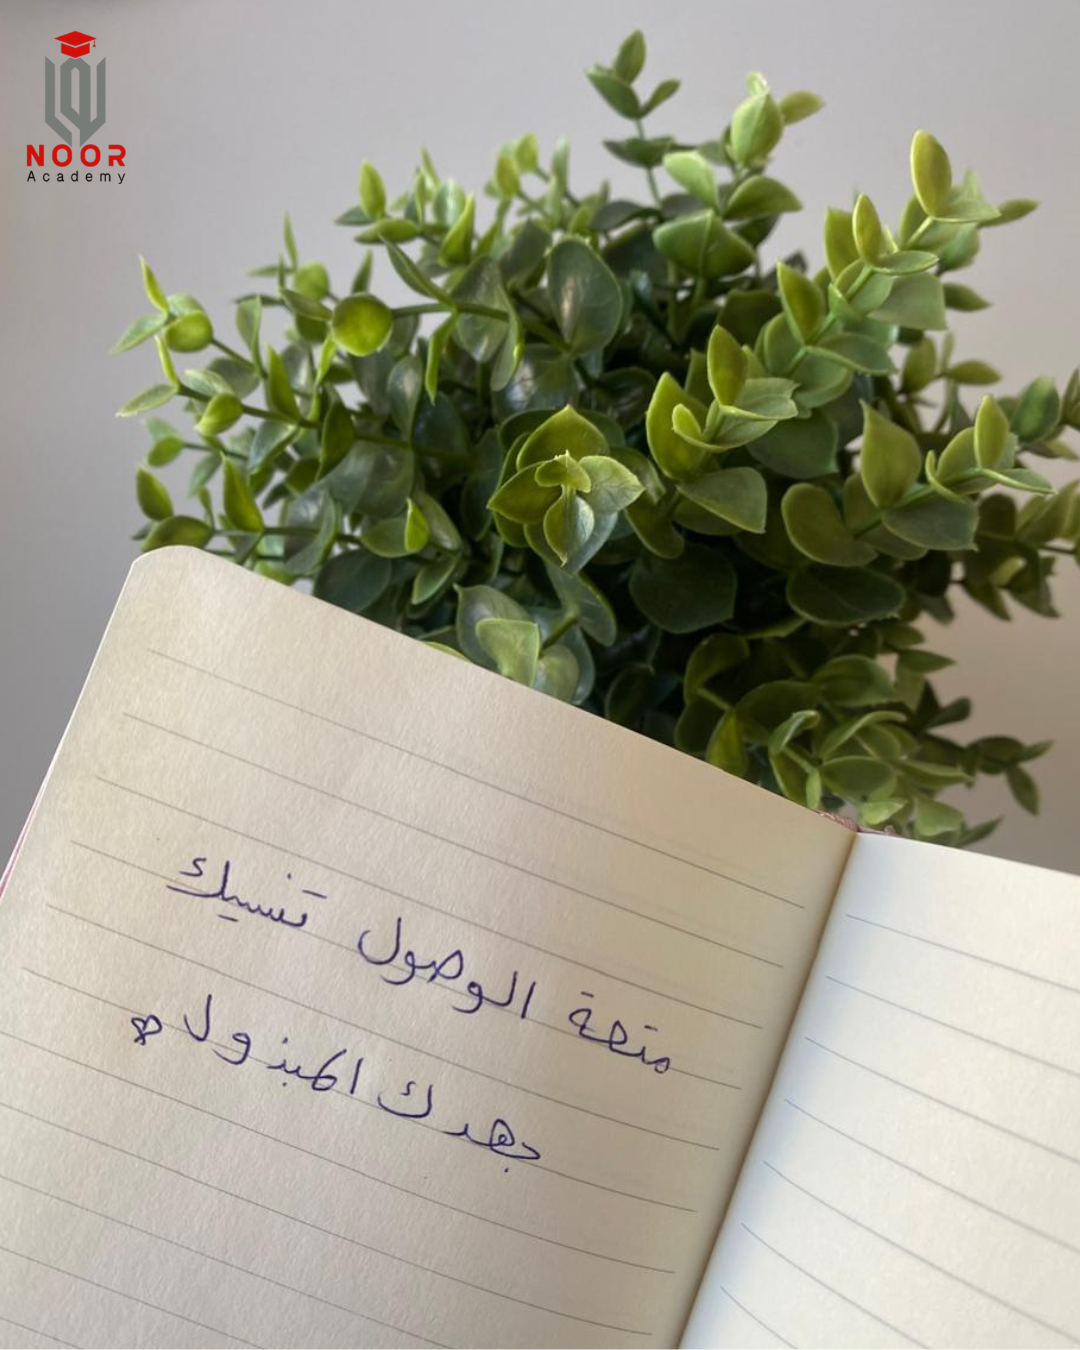 NOOR
Academy
متعة الوصول تنسيك
جهدك المبذول